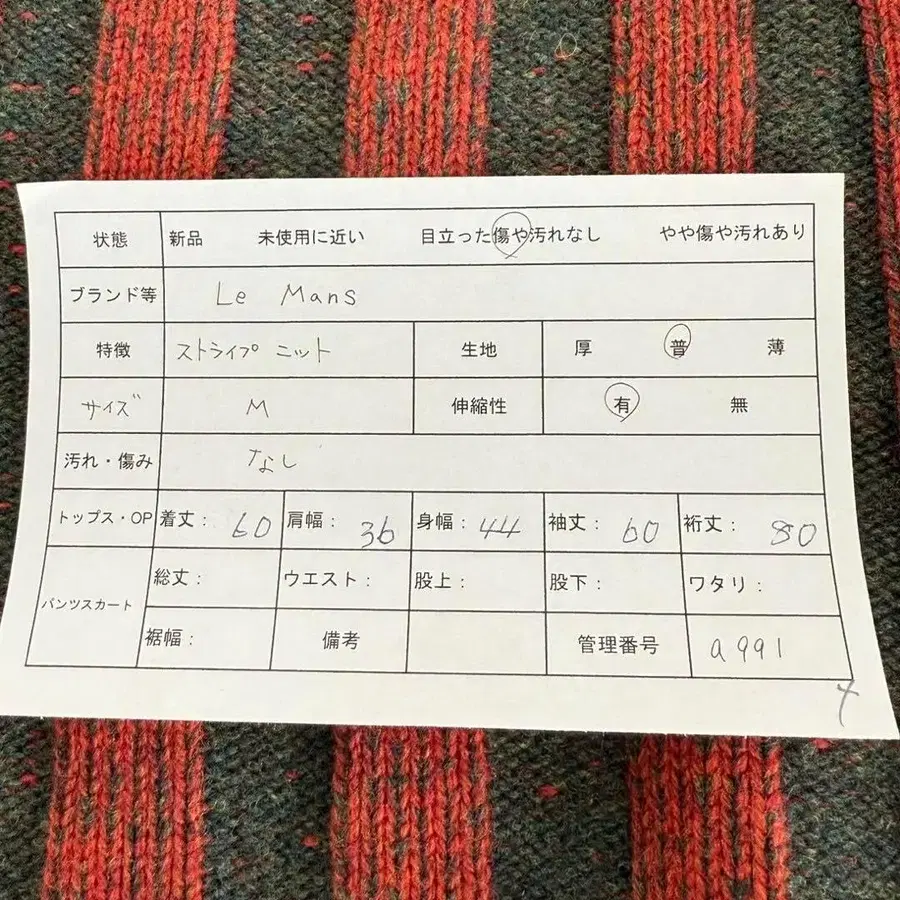 状態 新品 未使用に近い 目立った傷や汚れなし やや傷や汚れあり
ブランド等 Le Mans
特徴 ストライプ ニット 生地 厚 普 薄
サイズ M 伸縮性 有 無
汚れ・傷み なし
トップス・OP 着丈： 60 肩幅： 36 身幅： 44 袖丈： 60 裄丈： 80
パンツスカート 総丈： ウエスト： 股上： 股下： ワタリ：
裾幅： 備考 管理番号 a991